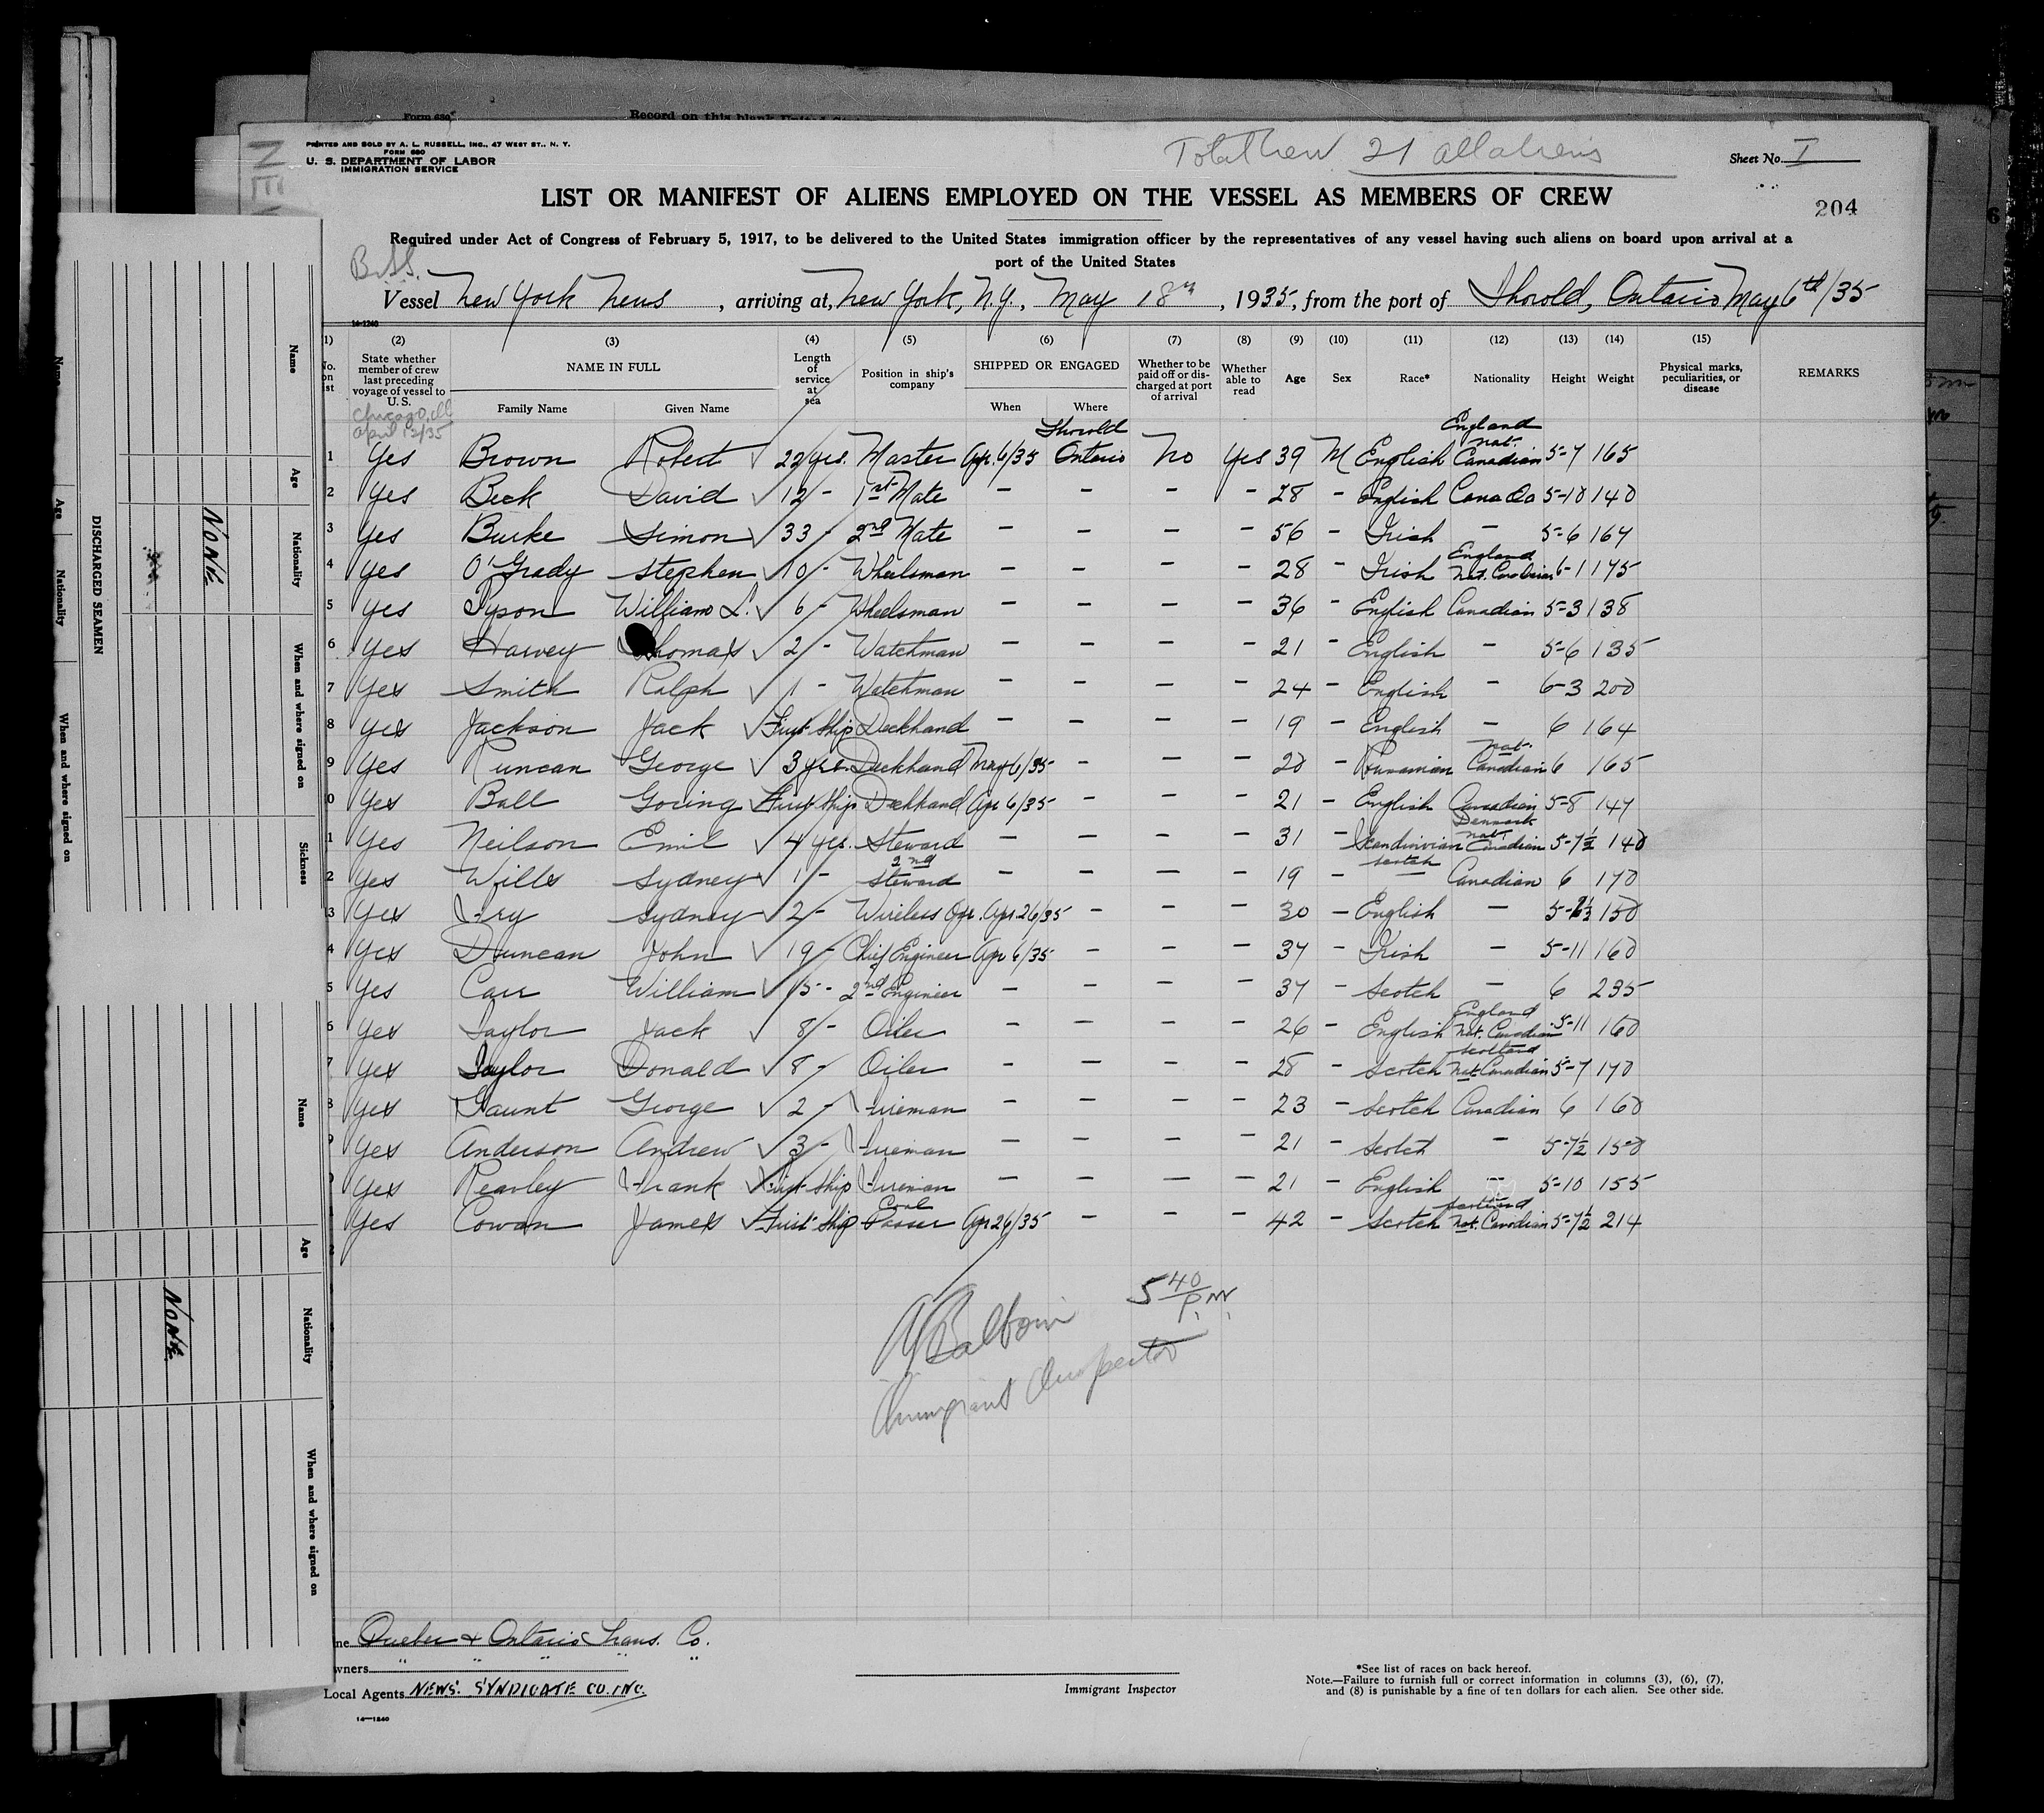 Form 680
Record on this blank United S
PRINTED AND SOLD BY A. L. RUSSELL, INC., 47 WEST ST., N. Y.
FORM 680
U. S. DEPARTMENT OF LABOR
IMMIGRATION SERVICE
Total Crew 21 all aliens
Sheet No. I
LIST OR MANIFEST OF ALIENS EMPLOYED ON THE VESSEL AS MEMBERS OF CREW
204
Required under Act of Congress of February 5, 1917, to be delivered to the United States immigration officer by the representatives of any vessel having such aliens on board upon arrival at a
port of the United States
Vessel New York News, arriving at, New York, N.Y., May 18th, 1935, from the port of Thorold, Ontario May 6th/35
14-1240
(1) (2) (3) (4) (5) (6) (7) (8) (9) (10) (11) (12) (13) (14) (15)
No. on list
State whether member of crew last preceding voyage of vessel to U. S.
NAME IN FULL
Family Name Given Name
Length of service at sea
Position in ship's company
SHIPPED OR ENGAGED
When Where
Whether to be paid off or discharged at port of arrival
Whether able to read
Age Sex Race* Nationality Height Weight
Physical marks, peculiarities, or disease
REMARKS
Chicago, Ill
April 12/35
1 Yes Brown Robert ✓ 22 yrs. Master Apr. 6/35 Thorold Ontario No Yes 39 M English England nat. Canadian 5-7 165
2 Yes Beck David ✓ 12 - 1st Mate - - - - 28 - English Canada 5-10 140
3 Yes Burke Simon ✓ 33 - 2nd Mate - - - - 56 - Irish - 5-6 164
4 Yes O'Grady Stephen ✓ 10 - Wheelsman - - - - 28 - Irish England Nat. Canadian 6-1 175
5 Yes Tyson William L. ✓ 6 - Wheelsman - - - - 36 - English Canadian 5-3 138
6 Yes Harvey Thomas ✓ 2 - Watchman - - - - 21 - English - 5-6 135
7 Yes Smith Ralph ✓ 1 - Watchman - - - - 24 - English - 6-3 200
8 Yes Jackson Jack ✓ First Ship Deckhand - - - - 19 - English - 6 164
9 Yes Runcan George ✓ 3 yrs. Deckhand May 6/35 - - - 20 - Roumanian nat. Canadian 6 165
0 Yes Ball Goring ✓ First Ship Deckhand Apr 6/35 - - - 21 - English Canadian 5-8 147
1 Yes Neilson Emil ✓ 4 yrs. Steward - - - - 31 - Scandinivian Denmark nat. Canadian 5-7½ 140
2 Yes Wills Sydney ✓ 1 - 2nd Steward - - - - 19 - Scotch Canadian 6 170
3 Yes Fry Sydney ✓ 2 - Wireless Opr. Apr. 26/35 - - - 30 - English - 150
4 Yes Duncan John ✓ 19 - Chief Engineer Apr 6/35 - - - 37 - Irish - 5-11 160
5 Yes Carr William ✓ 15 - 2nd Engineer - - - - 37 - Scotch - 6 235
6 Yes Taylor Jack ✓ 8 - Oiler - - - - 26 - English England Nat. Canadian 5-11 160
7 Yes Taylor Donald ✓ 8 - Oiler - - - - 28 - Scotch Scotland Nat. Canadian 5-7 170
8 Yes Gaunt George ✓ 2 - Fireman - - - - 23 - Scotch Canadian 6 160
9 Yes Anderson Andrew ✓ 3 - Fireman - - - - 21 - Scotch - 5-7½ 150
Yes Rearley Frank ✓ First Ship Fireman - - - - 21 - English - 5-10 155
Yes Cowan James ✓ First Ship Coal Passer Apr 26/35 - - - 42 - Scotch Scotland Nat. Canadian 5-7½ 214
5 40 P.M.
Balboni
Immigrant Inspector
ne Quebec & Ontario Trans. Co.
wners " " " "
Local Agents NEWS SYNDICATE CO. INC.
14-1240
Immigrant Inspector
*See list of races on back hereof.
Note.—Failure to furnish full or correct information in columns (3), (6), (7),
and (8) is punishable by a fine of ten dollars for each alien. See other side.
DISCHARGED SEAMEN
Name Age Nationality When and where signed on Sickness
NONE
Name Age Nationality When and where signed on
NONE
Name Age Nationality When and where signed on